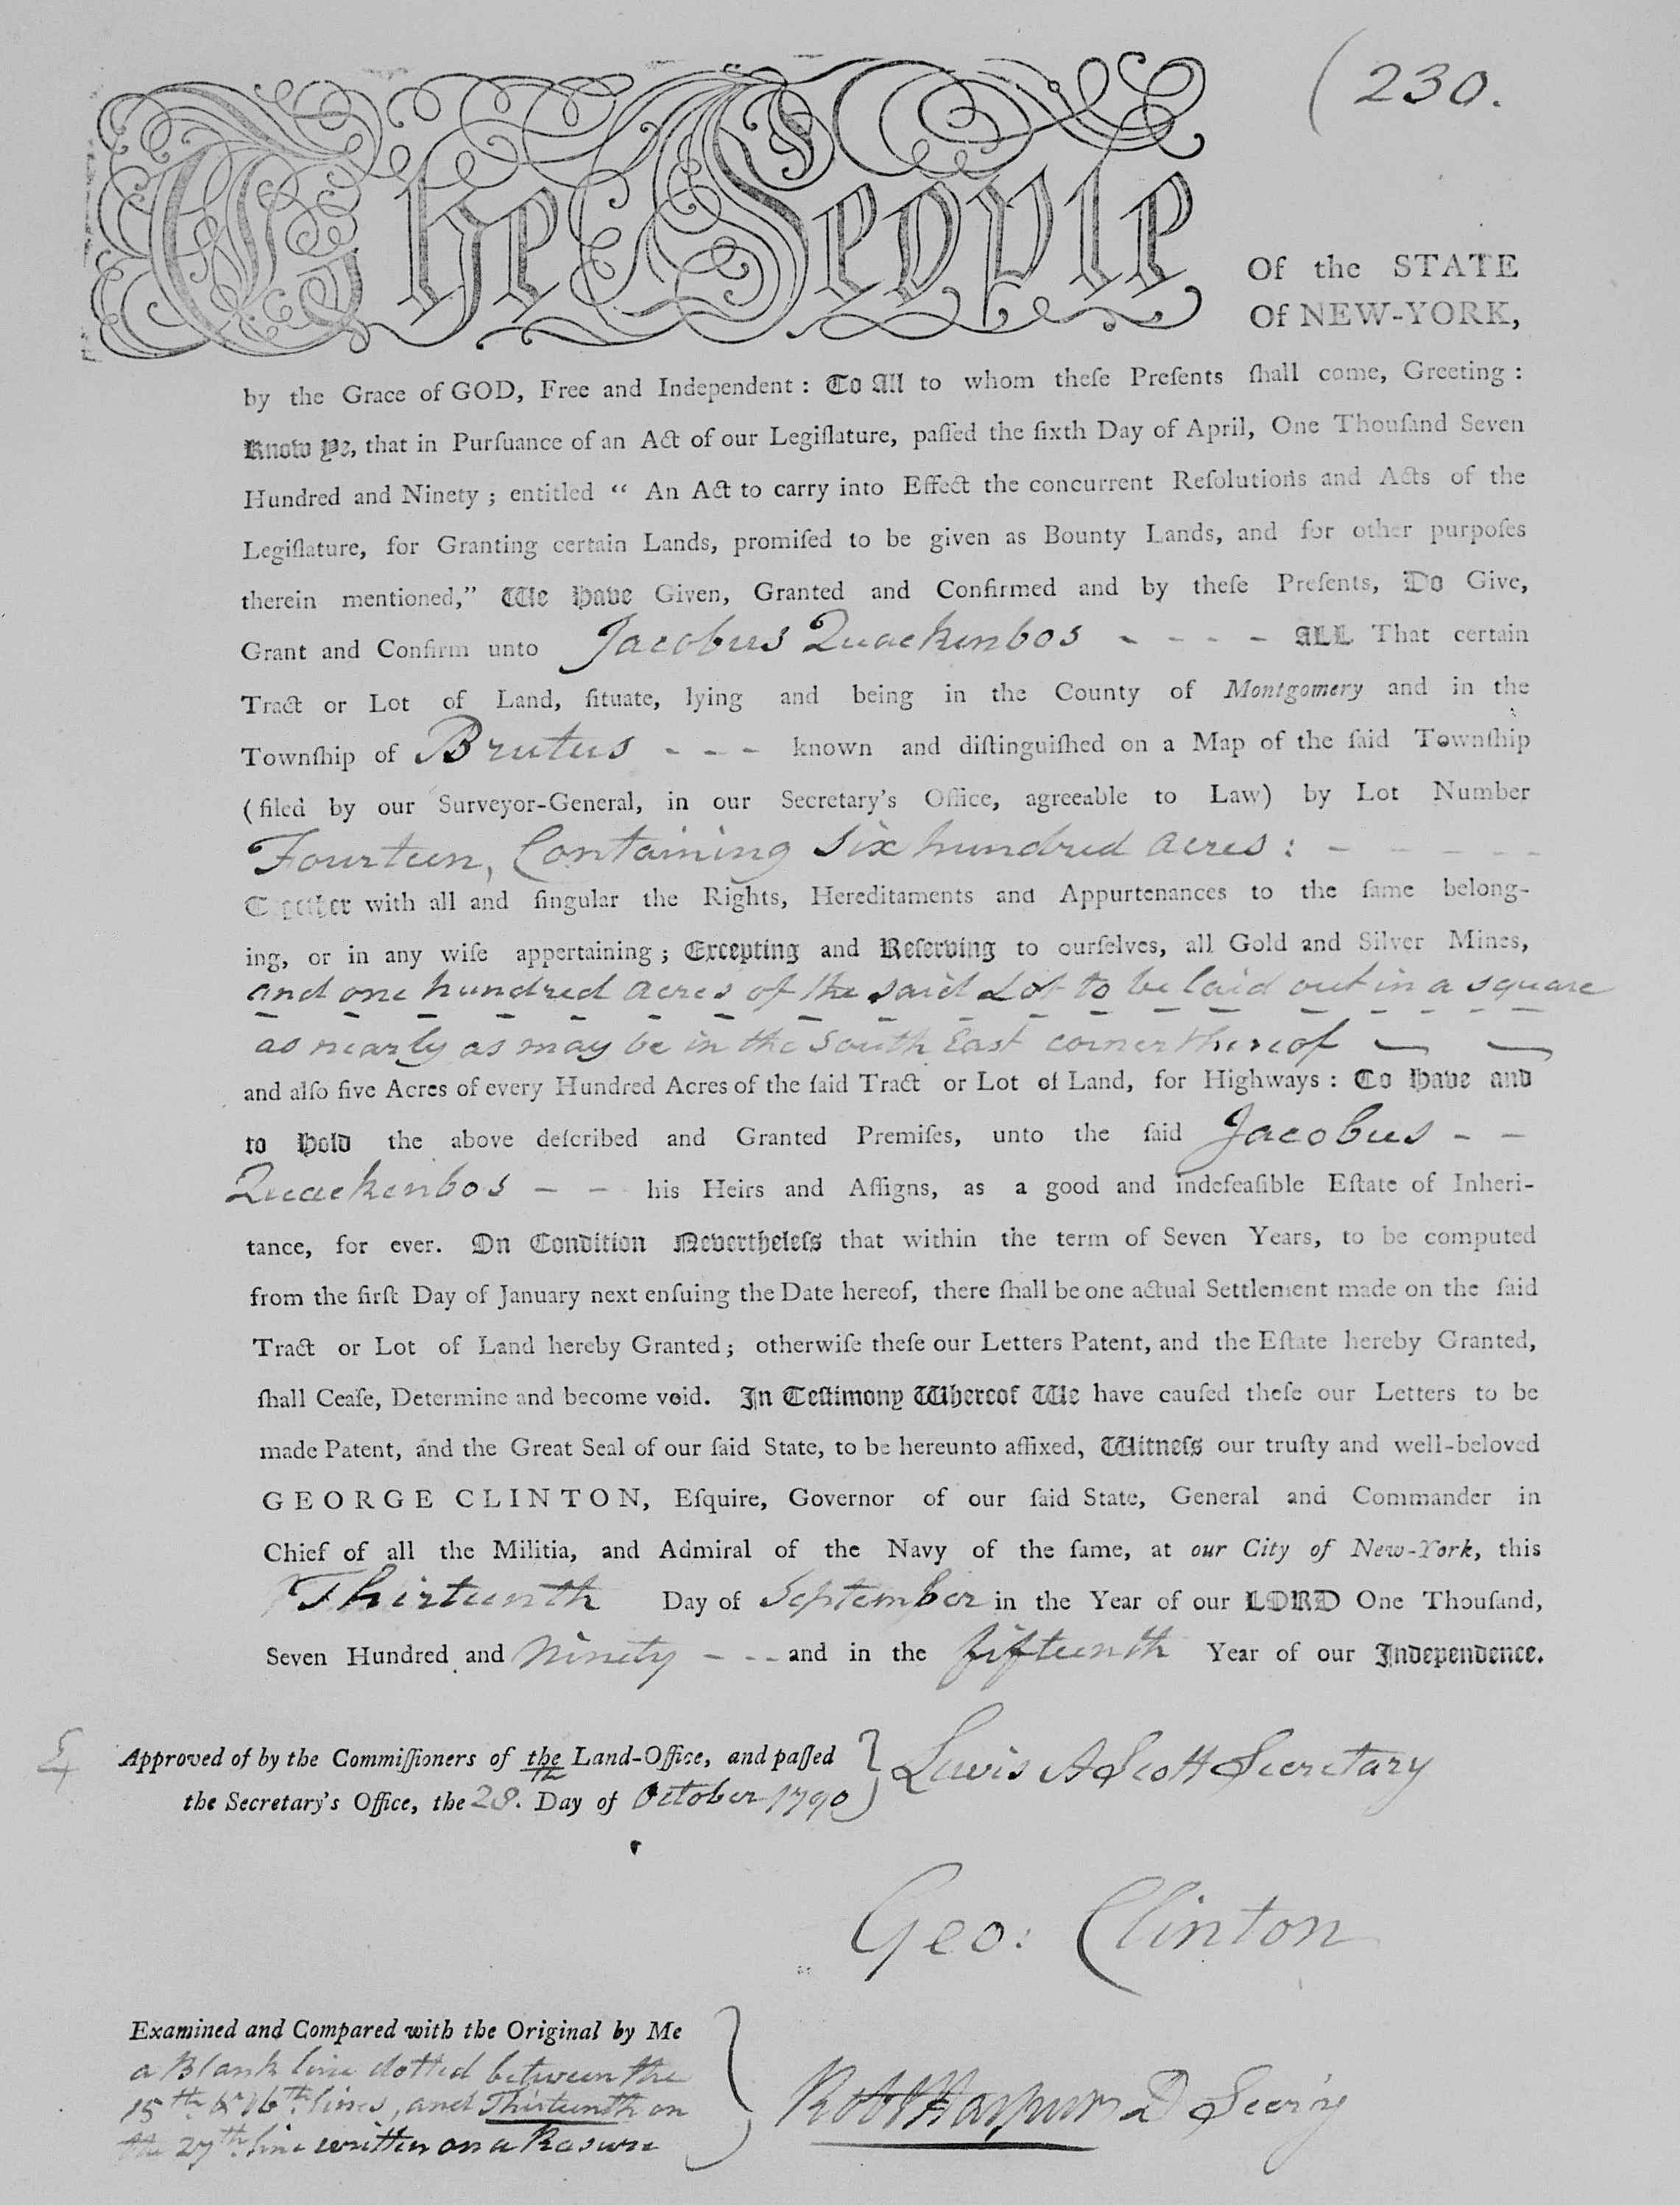 (230.
The People
Of the STATE
Of NEW-YORK,
by the Grace of GOD, Free and Independent : To All to whom theſe Preſents ſhall come, Greeting :
Know Ye, that in Purſuance of an Act of our Legiſlature, paſſed the ſixth Day of April, One Thouſand Seven
Hundred and Ninety ; entitled “ An Act to carry into Effect the concurrent Reſolutions and Acts of the
Legiſlature, for Granting certain Lands, promiſed to be given as Bounty Lands, and for other purpoſes
therein mentioned,” We Have Given, Granted and Confirmed and by theſe Preſents, Do Give,
Grant and Confirm unto Jacobus Quackenbos - - - - ALL That certain
Tract or Lot of Land, ſituate, lying and being in the County of Montgomery and in the
Townſhip of Brutus - - - known and diſtinguiſhed on a Map of the ſaid Townſhip
(filed by our Surveyor-General, in our Secretary’s Office, agreeable to Law) by Lot Number
Fourteen, Containing Six hundred acres : - - - - -
Together with all and ſingular the Rights, Hereditaments and Appurtenances to the ſame belong-
ing, or in any wiſe appertaining ; Excepting and Reſerving to ourſelves, all Gold and Silver Mines,
and one hundred acres of the said Lot to be laid out in a square
as nearly as may be in the South East corner thereof
and alſo five Acres of every Hundred Acres of the ſaid Tract or Lot of Land, for Highways : To Have and
to Hold the above deſcribed and Granted Premiſes, unto the ſaid Jacobus - -
Quackenbos - - his Heirs and Aſſigns, as a good and indefeaſible Eſtate of Inheri-
tance, for ever. On Condition Nevertheleſs that within the term of Seven Years, to be computed
from the firſt Day of January next enſuing the Date hereof, there ſhall be one actual Settlement made on the ſaid
Tract or Lot of Land hereby Granted ; otherwiſe theſe our Letters Patent, and the Eſtate hereby Granted,
ſhall Ceaſe, Determine and become void. In Teſtimony Whereof We have cauſed theſe our Letters to be
made Patent, and the Great Seal of our ſaid State, to be hereunto affixed, Witneſs our truſty and well-beloved
GEORGE CLINTON, Eſquire, Governor of our ſaid State, General and Commander in
Chief of all the Militia, and Admiral of the Navy of the ſame, at our City of New-York, this
Thirteenth Day of September in the Year of our LORD One Thouſand,
Seven Hundred and Ninety - - - and in the fifteenth Year of our Independence.
Approved of by the Commiſſioners of the Land-Office, and paſſed
the Secretary’s Office, the 28. Day of October 1790
Lewis A Scott Secretary
Geo: Clinton
Examined and Compared with the Original by Me
a Blank line dotted between the
15th & 16th lines, and Thirteenth on
the 27th line written on a Rasure
Robt Harpur D Secr'y